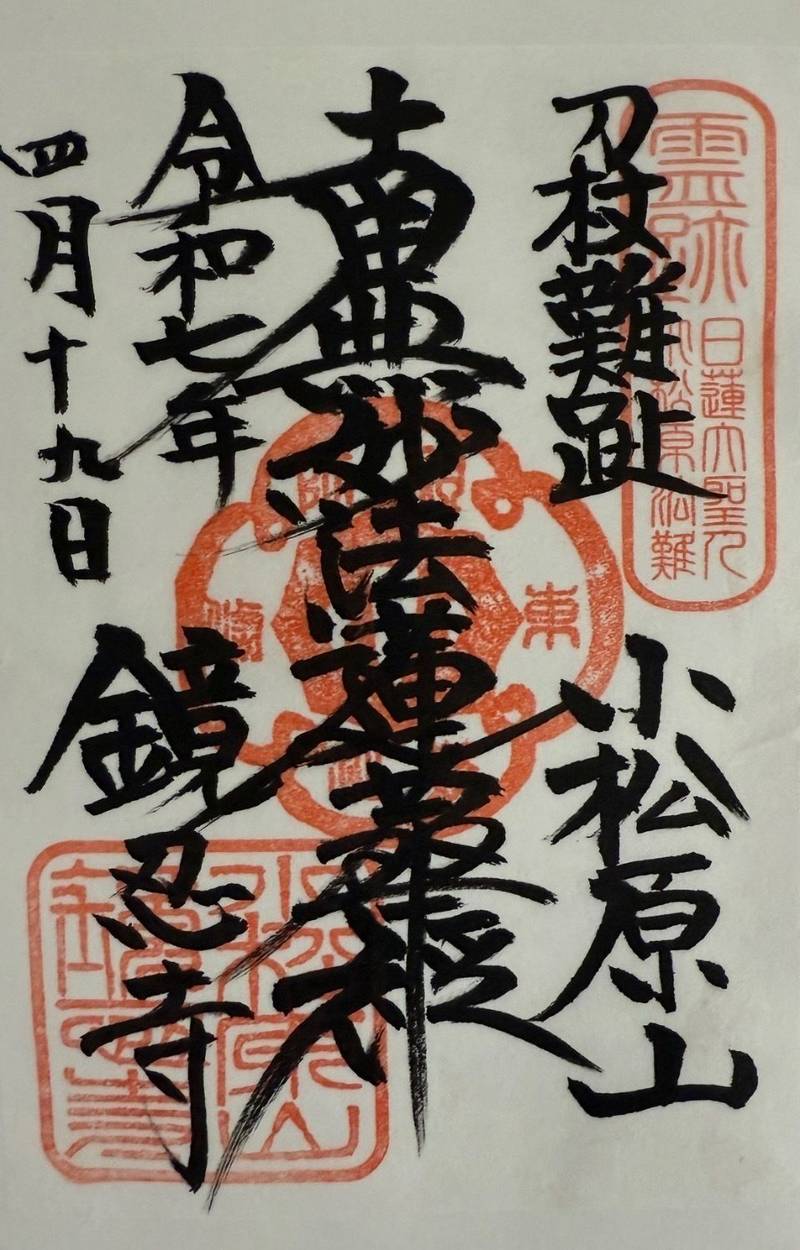 霊跡
日蓮大聖人
小松原法難
刀杖難趾
小松原山
南無妙法蓮華経
東
令和七年
四月十九日
鏡忍寺
小松原山
鏡忍寺